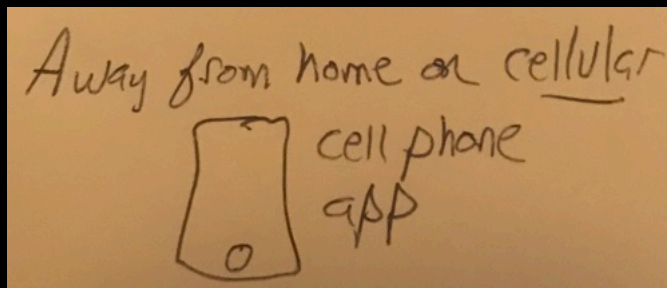 Away from home on cellular
cell phone
app